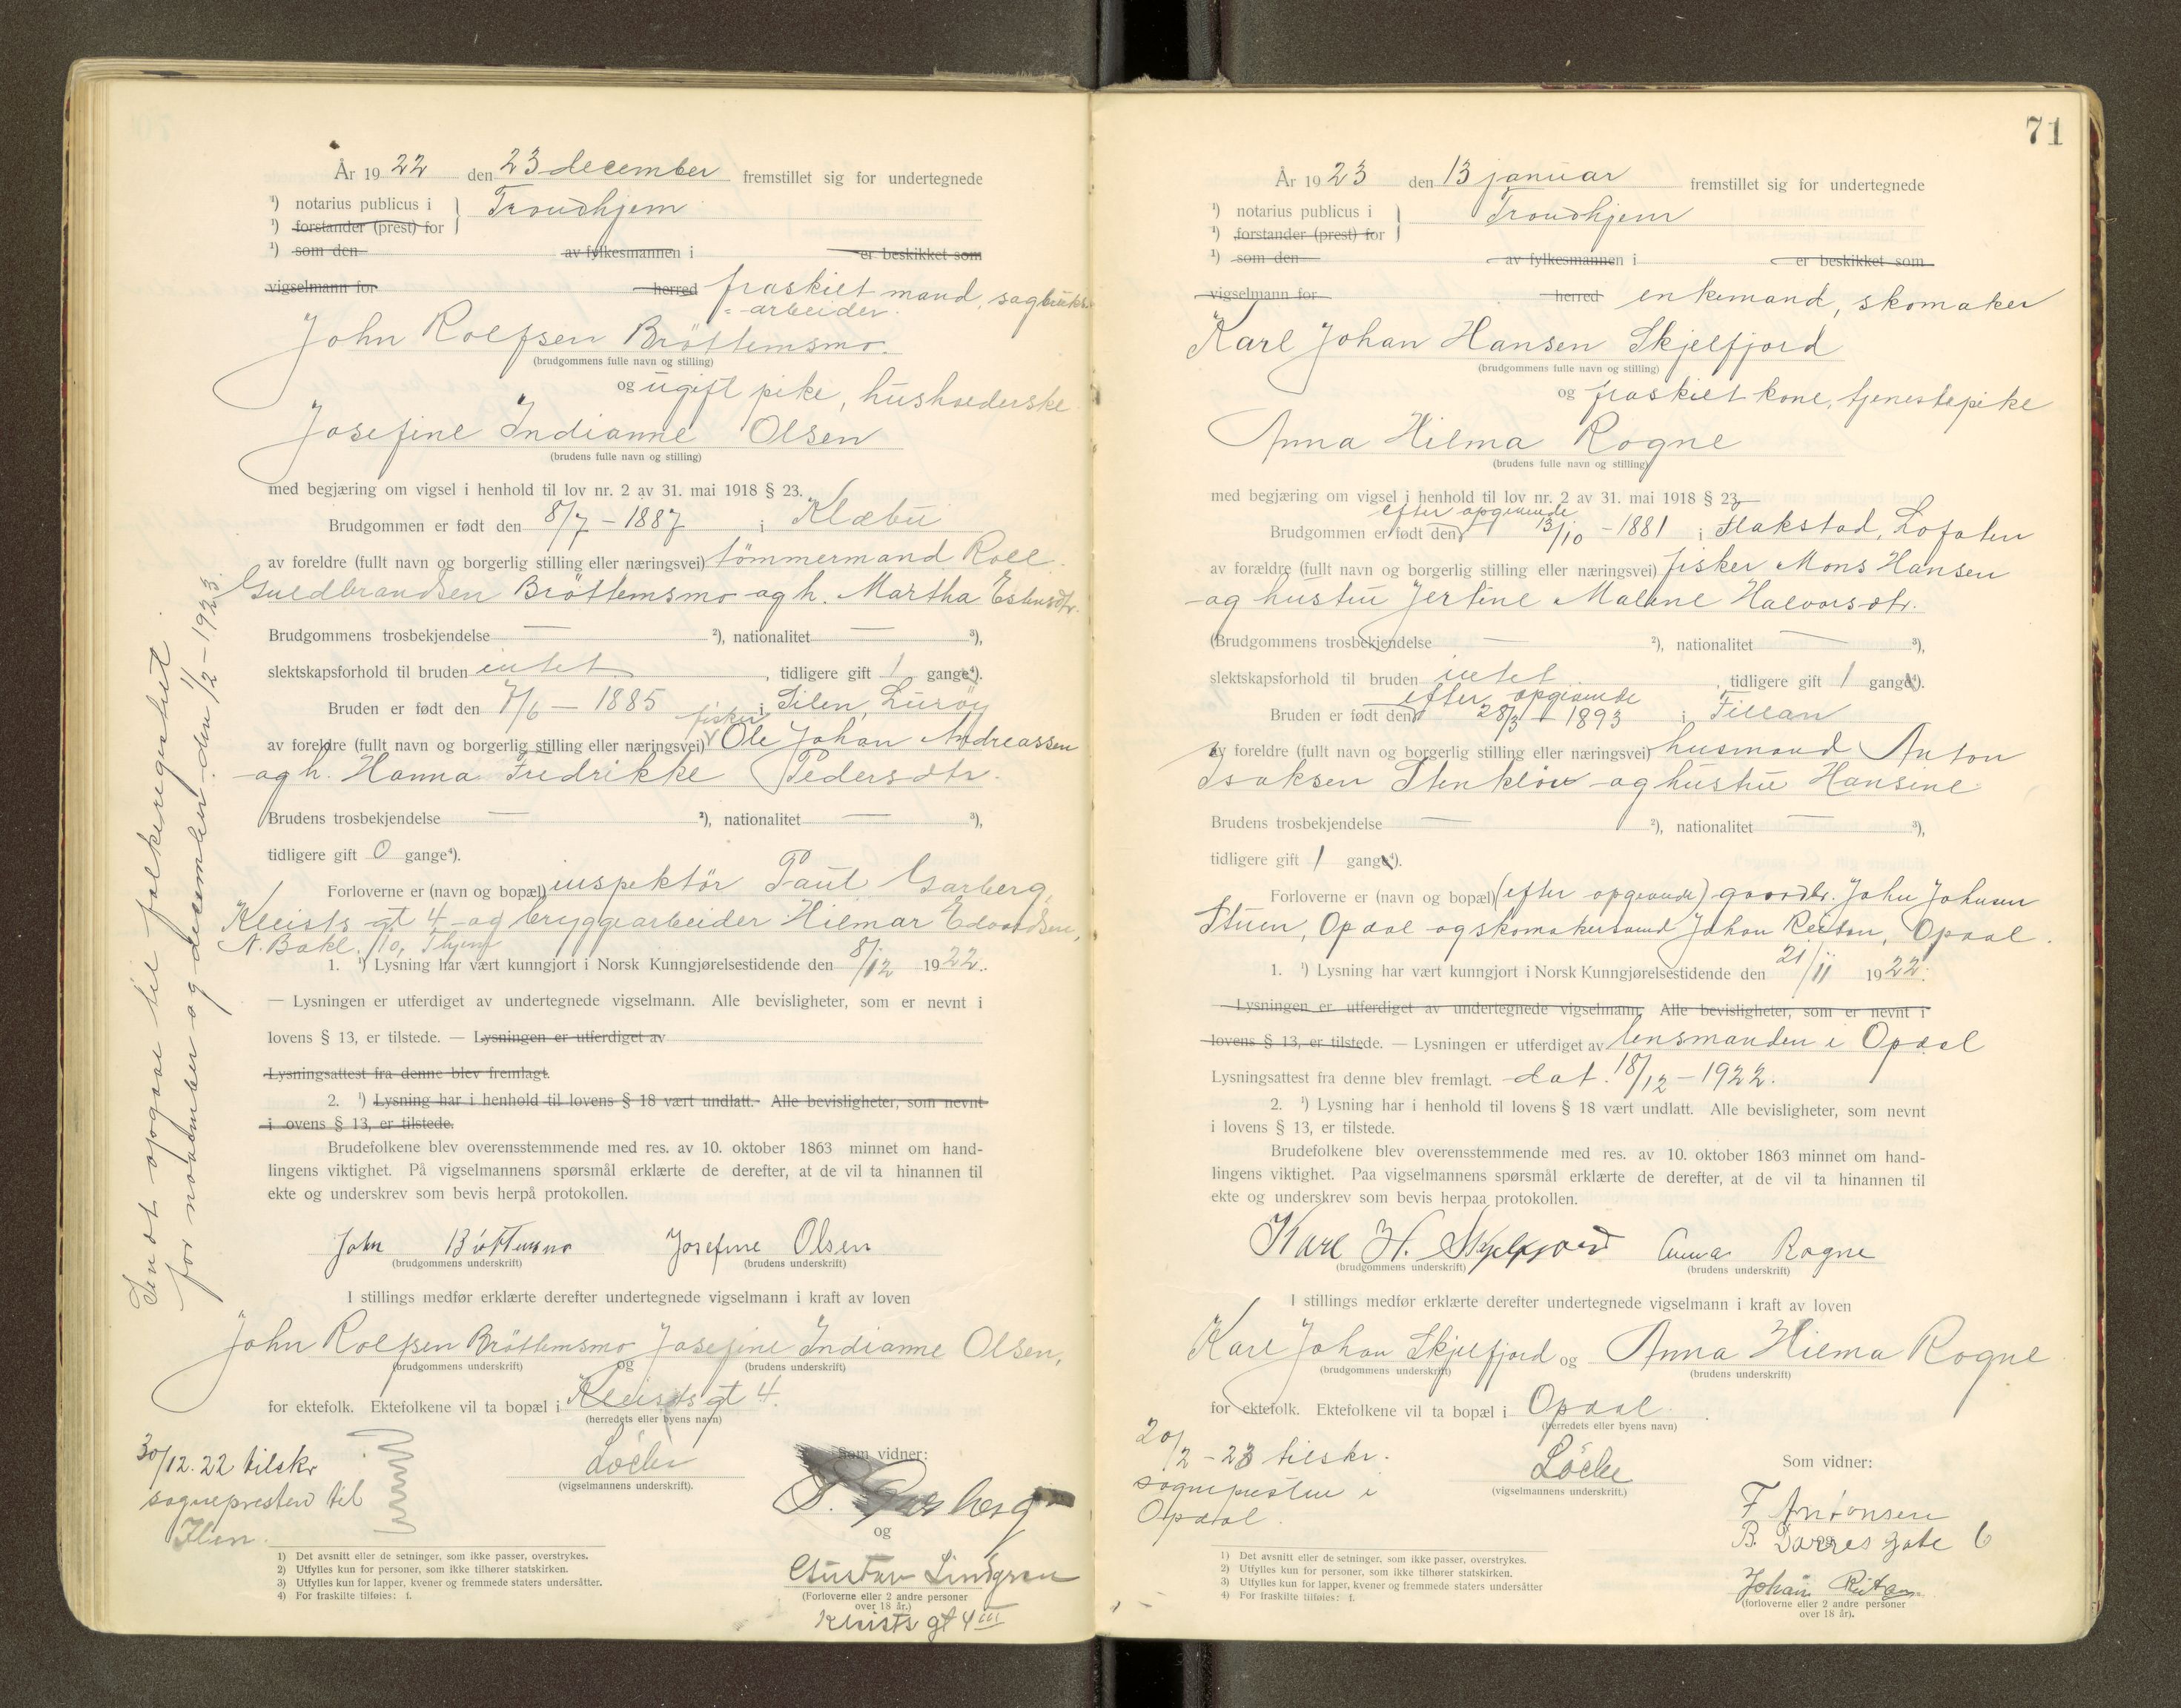 År 1922 den 23 december fremstillet sig for undertegnede
¹) notarius publicus i } Trondhjem
¹) forstander (prest) for
¹) som den av fylkesmannen i er beskikket som
vigselmann for herred fraskilt mand, sagbruks-
arbeider.
John Rolfsen Bröttemsmo.
(brudgommens fulle navn og stilling)
og ugift pike, husholderske
Josefine Indianne Olsen
(brudens fulle navn og stilling)
med begjæring om vigsel i henhold til lov nr. 2 av 31. mai 1918 § 23.
Brudgommen er født den 8/7 - 1887 i Klæbu
av foreldre (fullt navn og borgerlig stilling eller næringsvei) tömmermand Roll
Guldbrandsen Bröttemsmo og h. Martha
Brudgommens trosbekjendelse — ²), nationalitet — ³),
slektskapsforhold til bruden intet, tidligere gift 1 gange⁴).
Bruden er født den 7/6 - 1885 i Silen, Luröy
fisker
av foreldre (fullt navn og borgerlig stilling eller næringsvei) Ole Johan Andreassen
og h. Hanna Fredrikke Pedersdtr.
Brudens trosbekjendelse — ²), nationalitet — ³),
tidligere gift 0 gange⁴).
Forloverne er (navn og bopæl) inspektör Paul Garberg,
Kleists gt 4 og bryggearbeider Hilmar Edvardsen,
N. Bakl. 10, Thjem
1. ¹) Lysning har vært kunngjort i Norsk Kunngjørelsestidende den 8/12 1922.
— Lysningen er utferdiget av undertegnede vigselmann. Alle bevisligheter, som er nevnt i
lovens § 13, er tilstede. — Lysningen er utferdiget av
Lysningsattest fra denne blev fremlagt.
2. ¹) Lysning har i henhold til lovens § 18 vært undlatt. Alle bevisligheter, som nevnt
i ovens § 13, er tilstede.
Brudefolkene blev overensstemmende med res. av 10. oktober 1863 minnet om hand-
lingens viktighet. På vigselmannens spørsmål erklærte de derefter, at de vil ta hinannen til
ekte og underskrev som bevis herpå protokollen.
John Bröttemsmo Josefine Olsen
(brudgommens underskrift) (brudens underskrift)
I stillings medfør erklærte derefter undertegnede vigselmann i kraft av loven
John Rolfsen Bröttemsmo og Josefine Indianne Olsen,
(brudgommens underskrift) (brudens underskrift)
for ektefolk. Ektefolkene vil ta bopæl i Kleists gt 4.
(herredets eller byens navn)
30/12.22 tilskr
sognepresten til
Ilen.
Löche
(vigselmannens underskrift).
Som vidner:
P. Garberg
og
Gustav Lindgren
(Forloverne eller 2 andre personer
over 18 år.)
Kleists gt 4 III
1) Det avsnitt eller de setninger, som ikke passer, overstrykes.
2) Utfylles kun for personer, som ikke tilhører statskirken.
3) Utfylles kun for lapper, kvener og fremmede staters undersåtter.
4) For fraskilte tilføies: f.
Sendt opgave til folkeregistret
for november og december den 1/2 - 1923.
71
År 1923 den 13 januar fremstillet sig for undertegnede
¹) notarius publicus i } Trondhjem
¹) forstander (prest) for
¹) som den av fylkesmannen i er beskikket som
vigselmann for herred enkemand, skomaker
Karl Johan Hansen Skjelfjord
(brudgommens fulle navn og stilling)
og fraskilt kone, tjenestepike
Anna Hilma Rogne
(brudens fulle navn og stilling)
med begjæring om vigsel i henhold til lov nr. 2 av 31. mai 1918 § 23
efter opgivende
Brudgommen er født den 13/10 - 1881 i Flakstad, Lofoten
av forældre (fullt navn og borgerlig stilling eller næringsvei) fisker Mons Hansen
og hustru Jertine Malene Halvorsdtr.
(Brudgommens trosbekjendelse — ²), nationalitet — ³),
slektskapsforhold til bruden intet, tidligere gift 1 gange⁴).
efter opgivende
Bruden er født den 28/3 - 1893 i Fillan
av foreldre (fullt navn og borgerlig stilling eller næringsvei) husmand Anton
Isaksen og hustru Hansine
Brudens trosbekjendelse — ²), nationalitet — ³),
tidligere gift 1 gange⁴).
Forloverne er (navn og bopæl) (efter opgivende) gaardbr. John Johnsen
Stuen, Opdal og skomakersvend Johan Reitan, Opdal.
1. ¹) Lysning har vært kunngjort i Norsk Kunngjørelsestidende den 21/11 1922.
Lysningen er utferdiget av undertegnede vigselmann. Alle bevisligheter, som er nevnt i
lovens § 13, er tilstede. — Lysningen er utferdiget av lensmanden i Opdal
Lysningsattest fra denne blev fremlagt. dat. 18/12 - 1922.
2. ¹) Lysning har i henhold til lovens § 18 vært undlatt. Alle bevisligheter, som nevnt
i lovens § 13, er tilstede.
Brudefolkene blev overensstemmende med res. av 10. oktober 1863 minnet om hand-
lingens viktighet. Paa vigselmannens spørsmål erklærte de derefter, at de vil ta hinannen til
ekte og underskrev som bevis herpaa protokollen.
Karl H. Skjelfjord Anna Rogne
(brudgommens underskrift) (brudens underskrift)
I stillings medfør erklærte derefter undertegnede vigselmann i kraft av loven
Karl Johan Skjelfjord og Anna Hilma Rogne
(brudgommens underskrift) (brudens underskrift)
for ektefolk. Ektefolkene vil ta bopæl i Opdal
(herredets eller byens navn)
20/2 - 23 tilskr.
sognepresten i
Opdal.
Löche
(vigselmannens underskrift.)
Som vidner:
F Antonsen
og
B. Dorres gate 6
Johan Reitan
(forloverne eller 2 andre personer
over 18 år).
1) Det avsnitt eller de setninger, som ikke passer, overstrykes.
2) Utfylles kun for personer, som ikke tilhører statskirken.
3) Utfylles kun for lapper, kvener og fremmede staters undersåtter
4) For fraskilte tilføies: f.